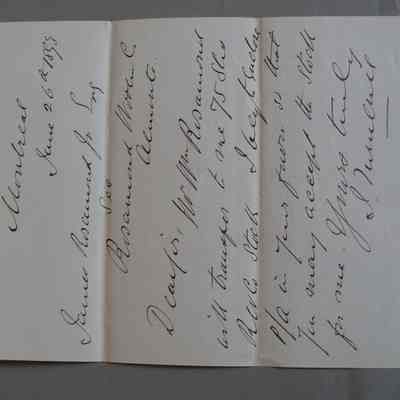 Montreal
June 26th 1893
James Rosamond Jr Esq
Rosamond Woolen C.
Almonte.
Dear Sir, Mr Wm Rosamond
will transfer to me 75 Shs
Stock I beg to enclose
P/A in your favor so that
you may accept the Stock
for me. Yours truly